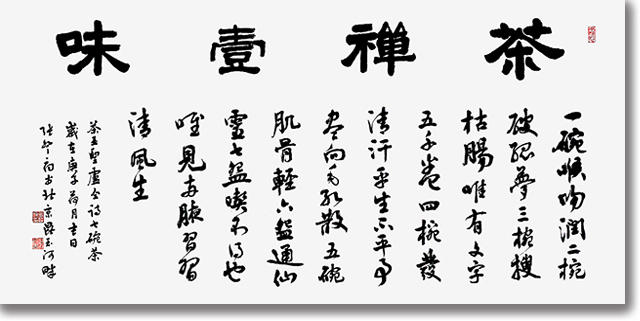 茶禪壹味
一碗喉吻潤二椀
破孤三椀搜
枯腸唯有文字
五千卷四椀發
清汗平生不平事
盡向毛孔散五碗
肌骨輕六盌通仙
靈七盌喫不得也
唯見两腋習習
清風生
茶亞聖盧仝詩七碗茶
歲在庚子荷月吉日
书於北京河畔